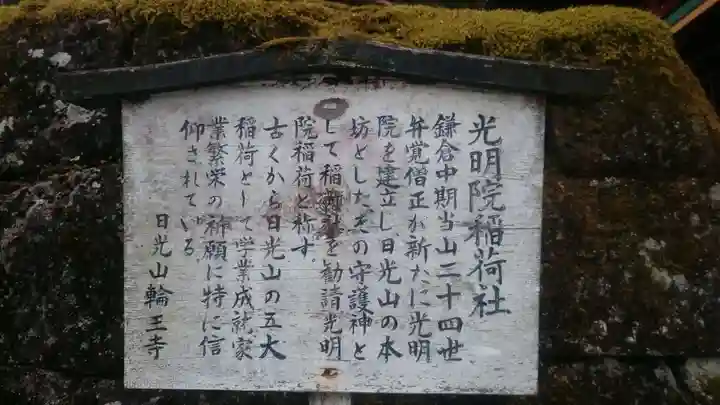 光明院稲荷社
鎌倉中期当山二十四世
弁覚僧正が新たに光明
院を建立し日光山の本
坊とした、その守護神と
して稲荷社を勧請光明
院稲荷と称す。
古くから日光山の五大
稲荷として学業成就家
業繁栄の祈願に特に信
仰されている
日光山輪王寺